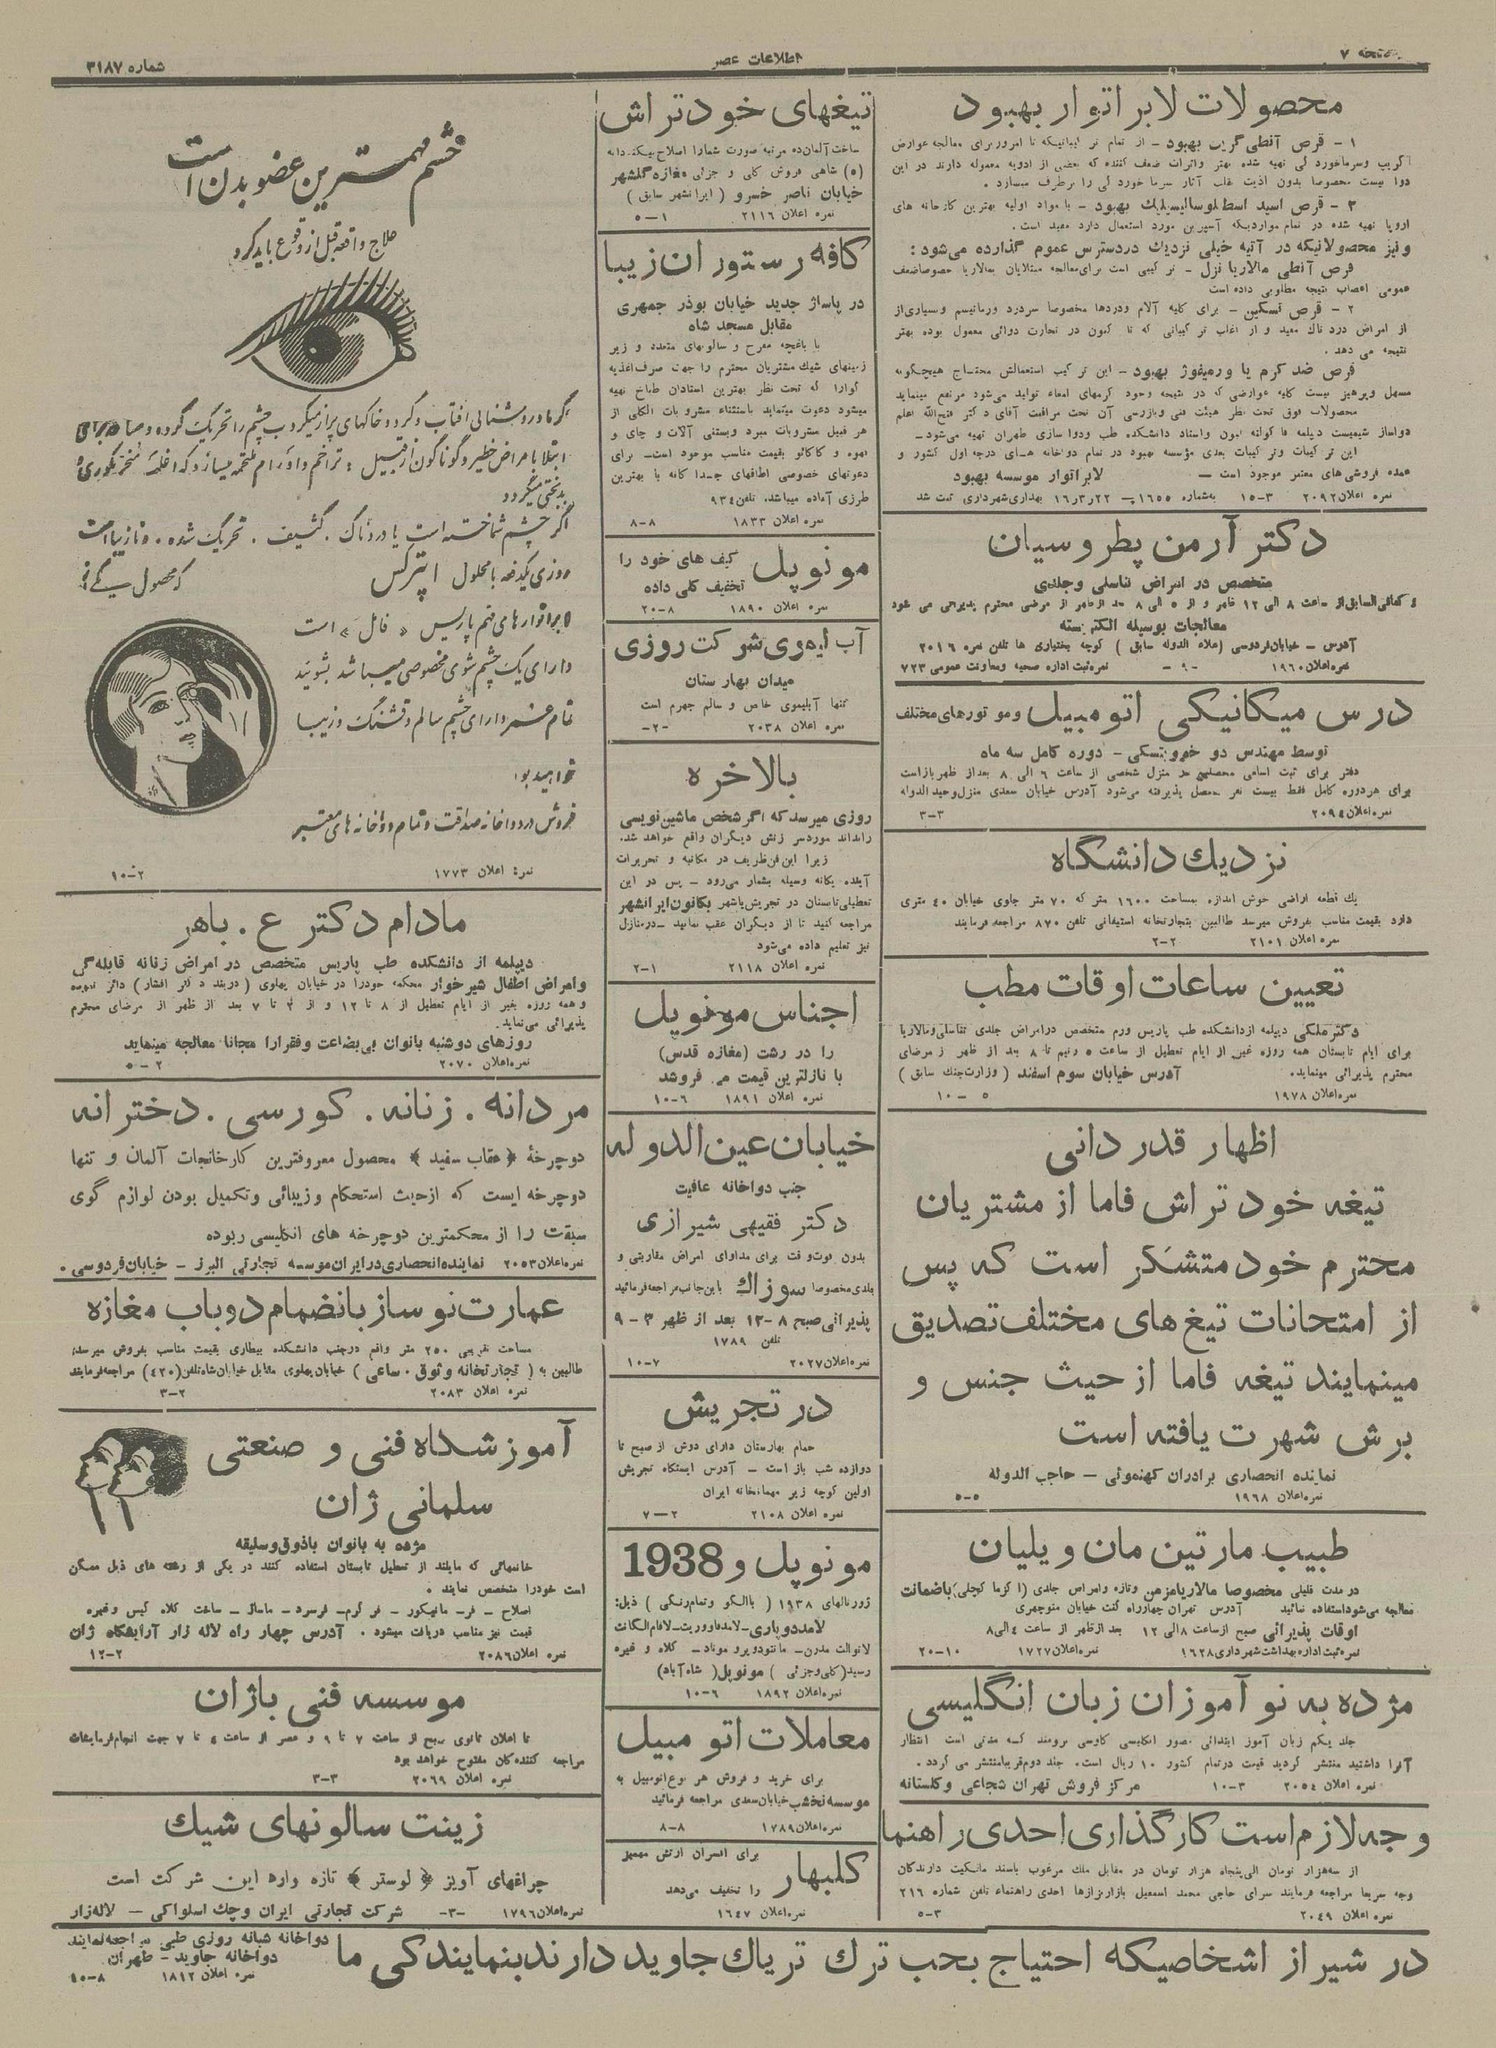 صفحه ۷
اطلاعات عصر
شماره ۳۱۸۷
محصولات لابراتوار بهبود
۱ - قرص آنطی گریپ بهبود - از تمام ترکیباتیکه تا امروز برای معالجه عوارض
گریپ وسرماخوردگی تهیه شده بهتر واثرات ضعف کننده که بعضی از ادویه معموله دارند در این
دوا نیست مخصوصا بدون اذیت قلب آثار سرماخوردگی را برطرف میسازد .
۲ - قرص اسید استیلوسالیسیلیک بهبود - با مواد اولیه بهترین کارخانه های
اروپا تهیه شده در تمام مواردیکه آسپرین مورد استعمال دارد مفید است .
و نیز محصولاتیکه در آتیه خیلی نزدیک دردسترس عموم گذارده می‌شود :
قرص آنطی مالاریا نزل - ترکیبی است برای معالجه مبتلایان بمالاریا خصوصاضعف
عمومی اعصاب نتیجه مطلوبی داده است
۲ - قرص تسکین - برای کلیه آلام ودردها مخصوصا سردرد ورماتیسم وبسیاری از
امراض دردناك مفید و از اغلب ترکیباتی که تا کنون در تجارت دوائی معمول بوده بهتر
نتیجه می دهد .
قرص ضد کرم یا ورمیفوژ بهبود - این ترکیب استعمالش محتاج هیچگونه
مسهل وپرهیز نیست کلیه عوارضی که در نتیجه وجود کرمهای امعاء تولید می‌شود مرتفع مینماید
محصولات فوق تحت نظر هیئت فنی وبازرسی آن تحت مراقبت آقای دکتر فتح‌الله اعلم
دواساز شیمیست دیپلمه فاکولته لیون واستاد دانشکده طب ودواسازی طهران تهیه می‌شود -
این ترکیبات وترکیبات بعدی مؤسسه بهبود در تمام دواخانه های درجه اول کشور و
عمده فروشی‌های معتبر موجود است - لابراتوار موسسه بهبود
نمره اعلان ۲۰۹۲ ۳-۱۵ به‌شماره ۱۶۵۵ - ۲۲ر۳ر۱۶ بهداری شهرداری ثبت شد
دکتر آرمن پطروسیان
متخصص در امراض تناسلی وجلدی
کمافی‌السابق از ساعت ۸ الی ۱۲ ظهر و از ۵ الی ۸ بعد ازظهر از مرضی محترم پذیرائی می شود
معالجات بوسیله الکتریسته
آدرس - خیابان فردوسی (علاء الدوله سابق) کوچه بختیاری ها تلفن نمره ۲۰۱۶
نمره اعلان ۱۹۶۰ -۹- نمره ثبت اداره صحیه ومعاونت عمومی ۷۲۳
درس میکانیکی اتومبیل ومو تورهای مختلف
توسط مهندس دو خوویتسکی - دوره کامل سه ماه
دفتر برای ثبت اسامی محصلین در منزل شخصی از ساعت ۶ الی ۸ بعد از ظهر باز است
برای هر دوره کامل فقط بیست نفر محصل پذیرفته می‌شود آدرس خیابان سعدی منزل وحیدالدوله
نمره اعلان ۲۰۹۴ ۳-۳
نزدیك دانشگاه
یك قطعه اراضی خوش اندازه بمساحت ۱۶۰۰ متر که ۷۰ متر جلوی خیابان ۴۰ متری
دارد بقیمت مناسب بفروش میرسد طالبین بتجارتخانه استیفانی تلفن ۸۷۰ مراجعه فرمایند
نمره اعلان ۲۱۰۱ ۲-۲
تعیین ساعات اوقات مطب
دکتر ملکی دیپلمه ازدانشکده طب پاریس ورم متخصص درامراض جلدی تناسلی ومالاریا
برای ایام تابستان همه روزه غیر از ایام تعطیل از ساعت ۵ ونیم تا ۸ بعد از ظهر از مرضای
محترم پذیرائی مینماید. آدرس خیابان سوم اسفند ( وزارت جنگ سابق )
نمره اعلان ۱۹۷۸ ۵ - ۱۰
اظهار قدردانی
تیغه خود تراش فاما از مشتریان
محترم خود متشکر است که پس
از امتحانات تیغ های مختلف تصدیق
مینمایند تیغه فاما از حیث جنس و
برش شهرت یافته است
نماینده انحصاری برادران کهنموئی - حاجب الدوله
نمره اعلان ۱۹۶۸ ۵-۵
طبیب مارتین مان ویلیان
در مدت قلیلی مخصوصا مالاریا مزمن وتازه وامراض جلدی (اکزما کچلی) باضمانت
معالجه می‌شود استفاده نمائید آدرس تهران چهارراه کنت خیابان منوچهری
اوقات پذیرائی صبح از ساعت ۸ الی ۱۲ بعد از ظهر از ساعت ۴ الی ۸
نمره ثبت اداره بهداشت شهرداری ۱۶۲۸ نمره اعلان ۱۷۲۷ ۱۰-۲۰
مژده به نو آموزان زبان انگلیسی
جلد یکم زبان آموز ابتدائی مصور انگلیسی کاوسی برومند که مدتی است انتظار
آنرا داشتید منتشر گردید قیمت درتمام کشور ۱۰ ریال است. جلد دوم قریبا منتشر می گردد .
نمره اعلان ۲۰۵۴ ۳-۱۰ مرکز فروش تهران شجاعی و گلستانه
وجه لازم است کارگذاری احدی راهنما
از سه‌هزار تومان الی پنجاه هزار تومان در مقابل ملك مرغوب باسند مالکیت دارندگان
وجه سریعا مراجعه فرمایند سرای حاجی محمد اسمعیل بازار بزازها احدی راهنماء تلفن شماره ۲۱۶
نمره اعلان ۲۰۴۹ ۳-۵
تیغهای خود تراش
ساخت آلمان ده مرتبه صورت شمارا اصلاح میکند دانه
(۵) شاهی فروش کلی و جزئی مغازه گلشهر
خیابان ناصر خسرو ( ایرانشهر سابق )
نمره اعلان ۲۱۱۶ ۱-۵
کافه رستوران زیبا
در پاساژ جدید خیابان بوذر جمهری
مقابل مسجد شاه
با باغچه مفرح و سالونهای متعدد و زیر
زمینهای شیك مشتریان محترم را جهت صرف اغذیه
گوارا که تحت نظر بهترین استادان طباخ تهیه
میشود دعوت مینماید باستثناء مشروبات الکلی از
هر قبیل مشروبات مبرد وبستنی آلات و چای و
قهوه و کاکائو بقیمت مناسب موجود است - برای
دعوتهای خصوصی اطاقهای جدا گانه با بهترین
طرزی آماده میباشد. تلفن ۹۳۴
نمره اعلان ۱۸۳۳ ۸-۸
مونوپل
کیف های خود را
تخفیف کلی داده
نمره اعلان ۱۸۹۰ ۸-۲۰
آب لیموی شرکت روزی
میدان بهارستان
تنها آبلیموی خاص و سالم جهرم است
نمره اعلان ۲۰۳۸ -۲-
بالاخره
روزی میرسد که اگر شخص ماشین نویسی
رانداند موردسرزنش دیگران واقع خواهد شد.
زیرا این فن ظریف در مکاتبه و تحریرات
آینده یگانه وسیله بشمار می‌رود - پس در این
تعطیلی تابستان در تجریش یاشهر بکانون ایرانشهر
مراجعه کنید تا از دیگران عقب نمانید - درمنازل
نیز تعلیم داده می‌شود
نمره اعلان ۲۱۱۸ ۱-۲
اجناس مونوپل
را در رشت (مغازه قدس)
با نازلترین قیمت می فروشد
نمره اعلان ۱۸۹۱ ۶-۱۰
خیابان عین الدوله
جنب دواخانه عافیت
دکتر فقیهی شیرازی
بدون فوت وقت برای مداوای امراض مقاربتی و
بلدی مخصوصا سوزاك باین جانب مراجعه فرمائید
پذیرائی صبح ۸-۱۲ بعد از ظهر ۳-۹
تلفن ۱۷۸۹
نمره اعلان ۲۰۲۷ ۷-۱۰
در تجریش
حمام بهارستان دارای دوش از صبح تا
دوازده شب باز است - آدرس ایستگاه تجریش
اولین کوچه زیر مهمانخانه ایران
نمره اعلان ۲۱۰۸ ۲-۷
مونوپل و 1938
ژورنالهای ۱۹۳۸ ( باالگو وتمام رنگی ) ذیل:
لامددوپاری - لامدفاووریت - لافام الگانت
لانوالت مدرن - مانتودیرو موناد - کلاه و غیره
رسید (کلی وجزئی ) مونوپل (شاه آباد)
نمره اعلان ۱۸۹۲ ۶-۱۰
معاملات اتومبیل
برای خرید و فروش هر نوع اتومبیل به
موسسه نخشب خیابان سعدی مراجعه فرمائید
نمره اعلان ۱۷۸۹ ۸-۸
گلبهار
برای افسران ارتش
را تخفیف می‌دهد
نمره اعلان ۱۶۴۷
چشم مهمترین عضو بدن است
علاج واقعه قبل از وقوع باید کرد
گرما و روشنائی آفتاب و گرد و خاکهای پر از میکروب چشم را تحریک کرده و مبادی
ابتلا بامراض خطیر و گوناگون از قبیل : تراخم و اورام ملتحمه میسازد که اغلب منجر بکوری و
بدبختی میگردد
اگر چشم شما خسته است یا دردناک . کثیف . تحریک شده . و نازیبا است
روزی یکدفعه با محلول اپترکس
که محصول
لابراتوارهای مهم پاریس « فال » است
دارای یک چشم شوی مخصوصی میباشد بشوئید
تمام عمر دارای چشم سالم و قشنگ و زیبا
خواهید بود
فروش در دواخانه صداقت و تمام دواخانه های معتبر
نمره اعلان ۱۷۷۳ ۲-۱۰
مادام دکتر ع . باهر
دیپلمه از دانشکده طب پاریس متخصص در امراض زنانه قابله‌گی
وامراض اطفال شیرخوار محکمه خودرا در خیابان پهلوی (دربند دکتر افشار) دائر نموده
و همه روزه بغیر از ایام تعطیل از ۸ تا ۱۲ و از ۴ تا ۷ بعد از ظهر از مرضای محترم
پذیرائی می‌نماید.
روزهای دوشنبه بانوان بی‌بضاعت وفقرارا مجانا معالجه مینماید
نمره اعلان ۲۰۷۰ ۲-۵
مردانه . زنانه . کورسی . دخترانه
دوچرخهٔ «عقاب سفید» محصول معروفترین کارخانجات آلمان و تنها
دوچرخه ایست که ازحیث استحکام وزیبائی وتکمیل بودن لوازم گوی
سبقت را از محکمترین دوچرخه های انگلیسی ربوده
نمره اعلان ۲۰۵۳ نماینده انحصاری درایران موسسه تجارتی البرز - خیابان فردوسی .
عمارت نو ساز بانضمام دو باب مغازه
مساحت تقریبی ۲۵۰ متر واقع درجنب دانشکده بیطاری بقیمت مناسب بفروش میرسد.
طالبین به ( تجارتخانه وثوق . ساعی ) خیابان پهلوی مقابل خیابان شاه تلفن (۴۲۰) مراجعه فرمایند
نمره اعلان ۲۰۸۳ ۲-۳
آموزشگاه فنی و صنعتی
سلمانی ژان
مژده به بانوان باذوق وسلیقه
خانمهائی که مایلند از تعطیل تابستان استفاده کنند در یکی از رشته های ذیل ممکن
است خودرا متخصص نمایند .
اصلاح - فر- مانیکور - فر گرم- فرسرد - ماساژ - ساخت کلاه گیس وغیره
قیمت نیز مناسب دریافت میشود . آدرس چهار راه لاله زار آرایشگاه ژان
نمره اعلان ۲۰۸۶ ۲-۱۲
موسسه فنی باژان
تا اعلان ثانوی صبح از ساعت ۷ تا ۹ و عصر از ساعت ۴ تا ۷ جهت انجام فرمایشات
مراجعه کنندگان مفتوح خواهد بود
نمره اعلان ۲۰۶۹ ۳-۳
زینت سالونهای شیك
چراغهای آویز « لوستر » تازه وارد این شرکت است
نمره اعلان ۱۷۹۶ -۳- شرکت تجارتی ایران وچك اسلواکی - لاله زار
در شیراز اشخاصیکه احتیاج بحب ترك تریاك جاوید دارند بنمایندگی ما
دواخانه شبانه روزی طبی مراجعه نمایند
دواخانه جاوید - طهران
نمره اعلان ۱۸۱۲ ۸-۴۰